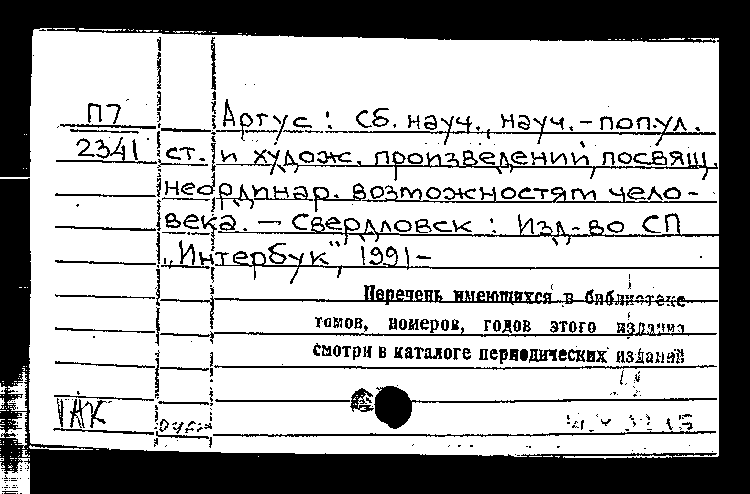 П7
2341
Аргус : Сб. науч., науч.-попул.
ст. и худож. произведений, посвящ.
неординар. возможностям чело-
века. — Свердловск : Изд-во СП
„Интербук", 1991-
Перечень имеющихся в библиотеке
томов, номеров, годов этого издания
смотри в каталоге периодических изданий